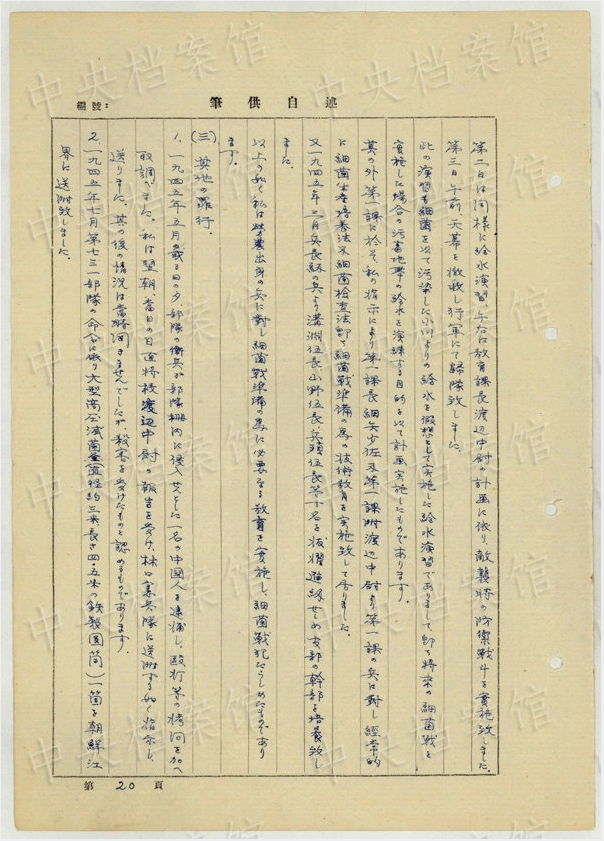 編號:
述自供筆
第二日は同様に給水演習、午后は教育課長渡辺中尉の計画に依り、敵襲時の防禦戦斗を実施致しました。
第三日午前天幕を徹收し行軍にて歸隊致しました。
此の演習も細菌を以て汚染した小川よりの給水を假想として実施した給水演習でありまして即ち将来の細菌戦を
実施した場合の汚毒地帯の給水を演練する目的を以て計画実施したものであります。
其の外第一課に於て私の指示により第一課長細矢少佐及第一課附渡辺中尉より第一課の兵に対し経常的
に細菌生産培養法及細菌検査法即ち細菌戦準備の為の技術教育を実施致して居りました。
又一九四五年三月兵長級の兵より溝渕伍長小野伍長兵頭伍長等十名を抜擢進級せしめ支部の幹部を培養致し
ました。
以上の如く私は農出身の兵に対し細菌戦準備の為に必要なる教育を実施し、細菌戦犯たらしめたものであり
ます。
(三) 其他の罪行.
1、一九四五年五月の或る日の夕、部隊の衛兵が部隊柵内に侵入せんとした一名の中国人を逮捕し、毆打等の拷問を加へ
取調べました。私は翌朝、当日の日直将校渡辺中尉の報告を受け、林口憲兵隊に送附する如く指示し、
送りました。其の後の情況は当時聞きませんでしたが、殺害を受けたものと認めるものであります。
2、一九四五年七月第七三一部隊の命令に依り大型高圧滅菌釜(直径約三米長さ四・五米の鉄製圓筒)一箇を朝鮮江
界に送附致しました。
第 20 頁
中央档案馆